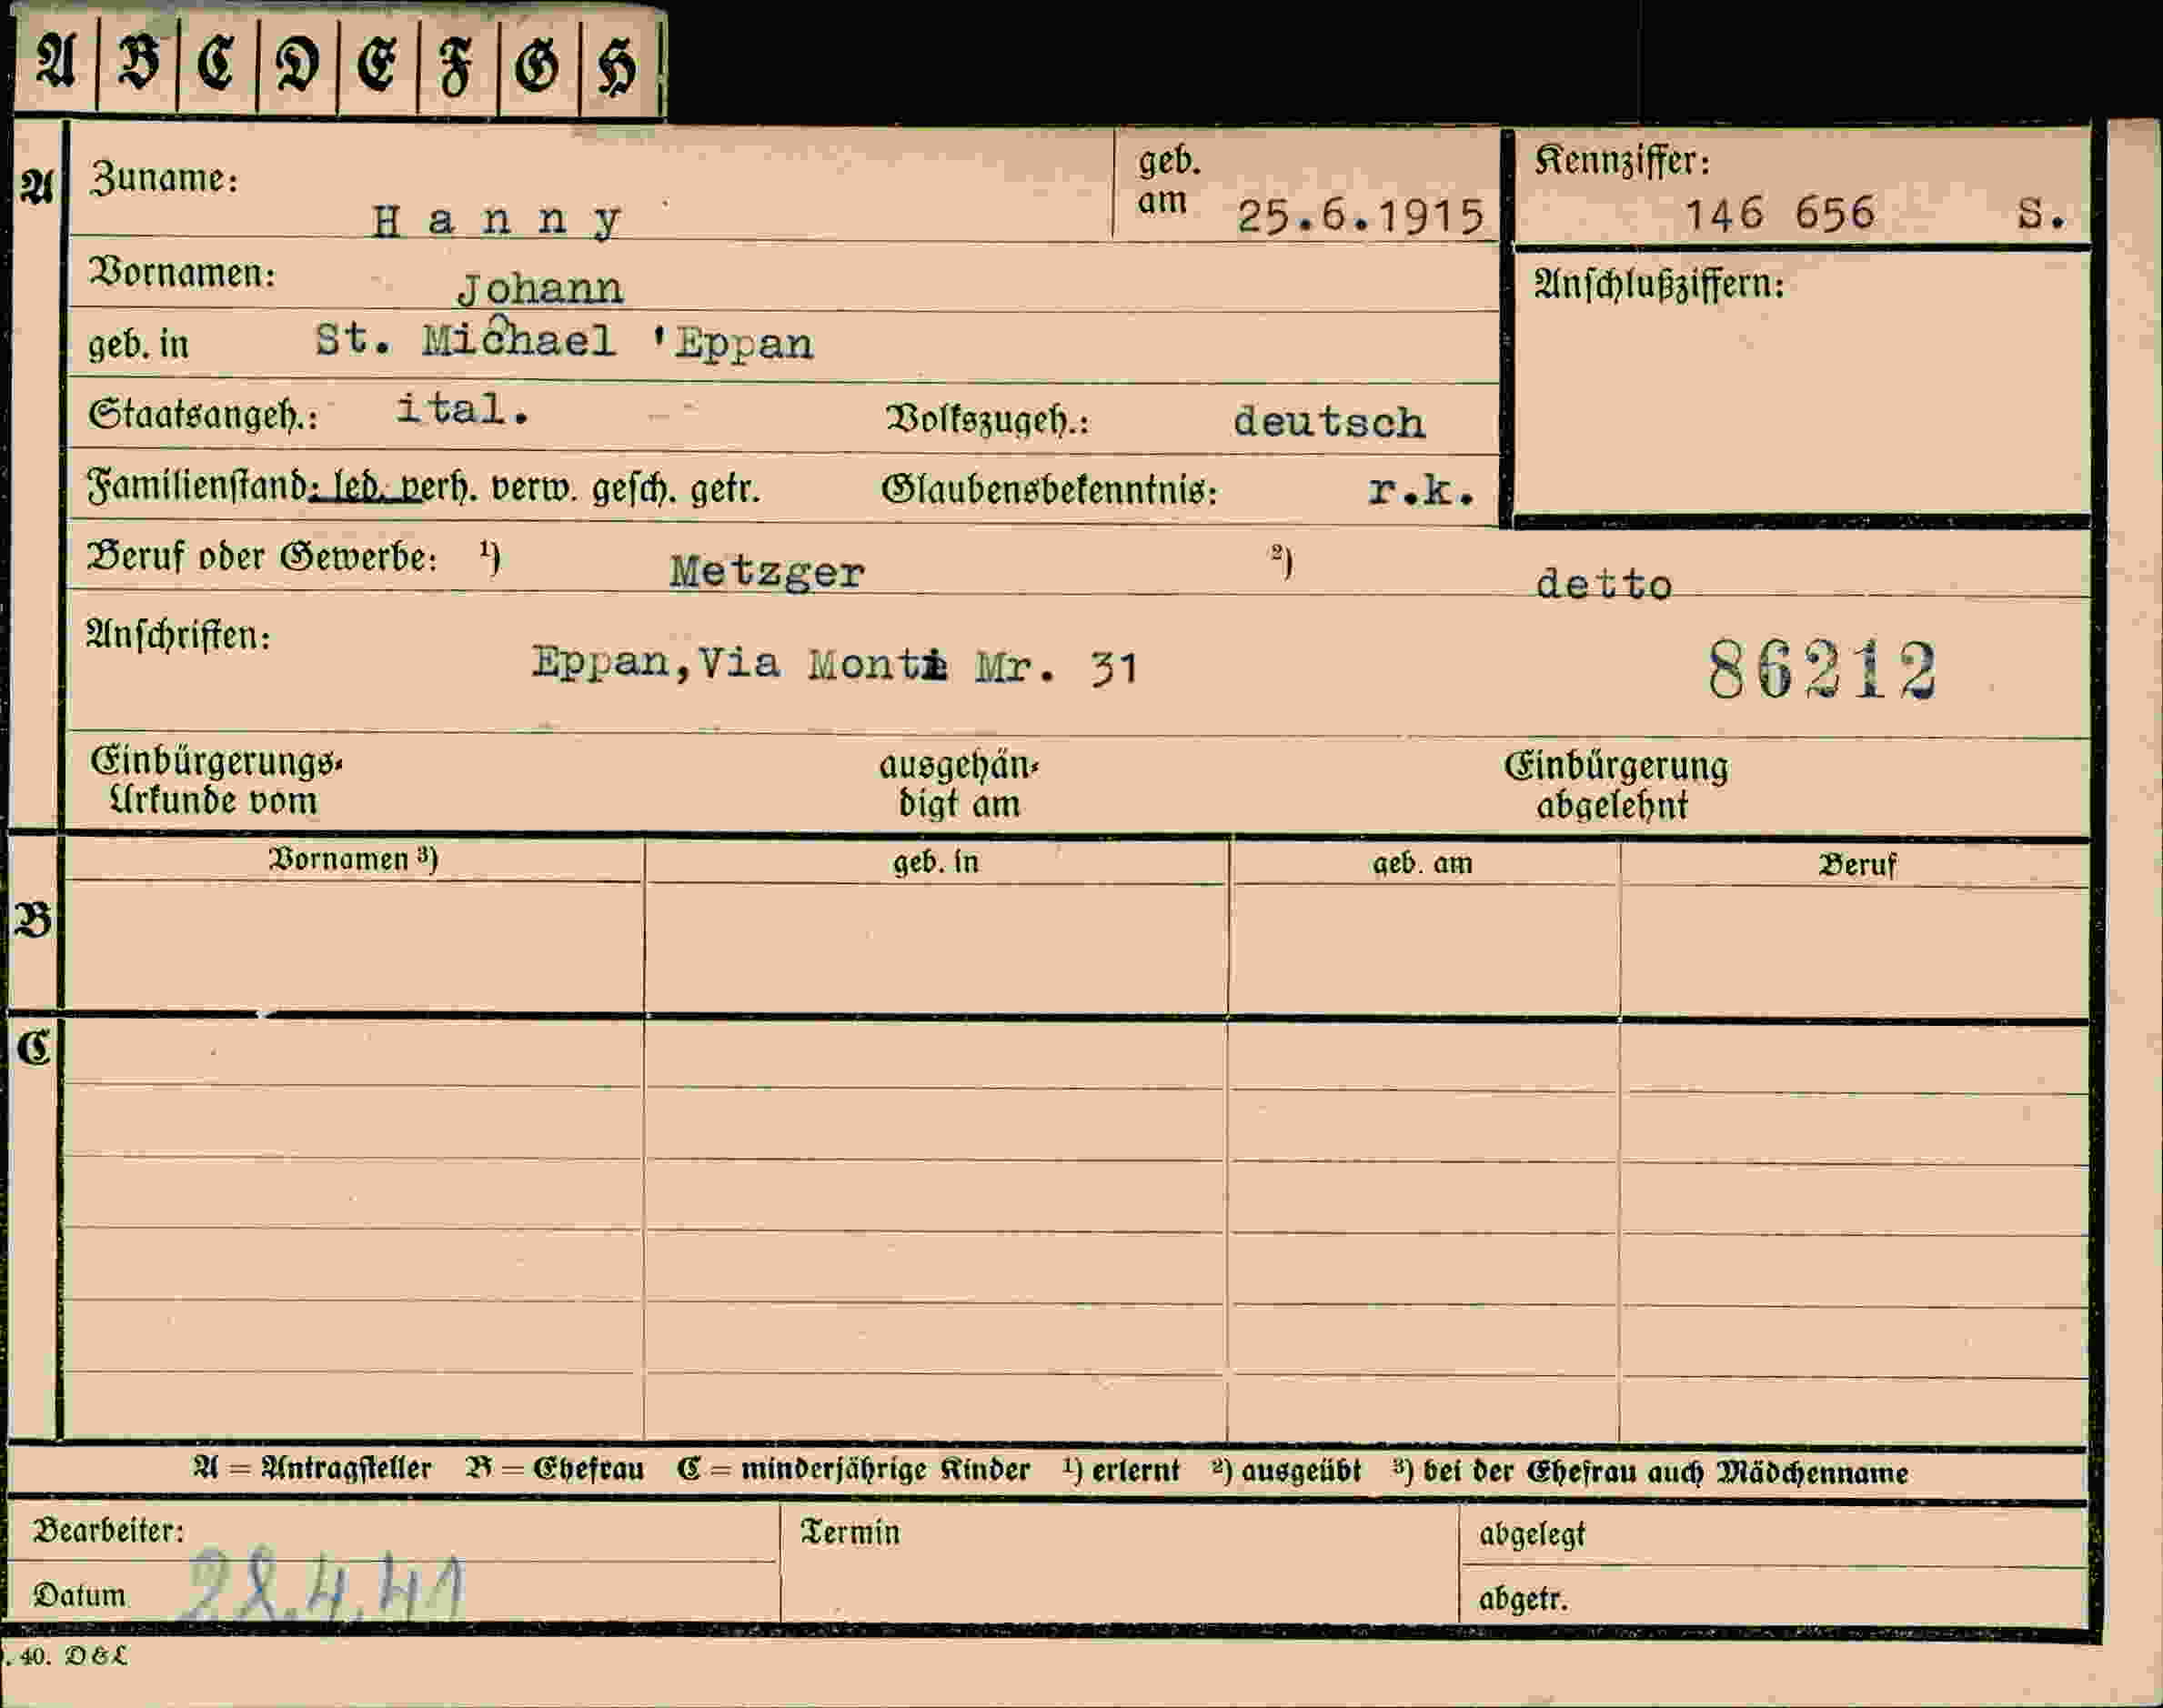 A B C D E F G H
A Zuname: Hanny geb. am 25.6.1915 Kennziffer: 146 656 S.
Vornamen: Johann Anschlußziffern:
geb. in St. Michael 'Eppan
Staatsangeh.: ital. Volkszugeh.: deutsch
Familienstand: led. verh. verw. gesch. getr. Glaubensbekenntnis: r.k.
Beruf oder Gewerbe: ¹) Metzger ²) detto
Anschriften: Eppan,Via Monti Mr. 31 86212
Einbürgerungs- ausgehän- Einbürgerung
Urkunde vom digt am abgelehnt
Vornamen ³) geb. in geb. am Beruf
B
C
A = Antragsteller B = Ehefrau C = minderjährige Kinder ¹) erlernt ²) ausgeübt ³) bei der Ehefrau auch Mädchenname
Bearbeiter: Termin abgelegt
Datum 28.4.41 abgetr.
. 40. D & L